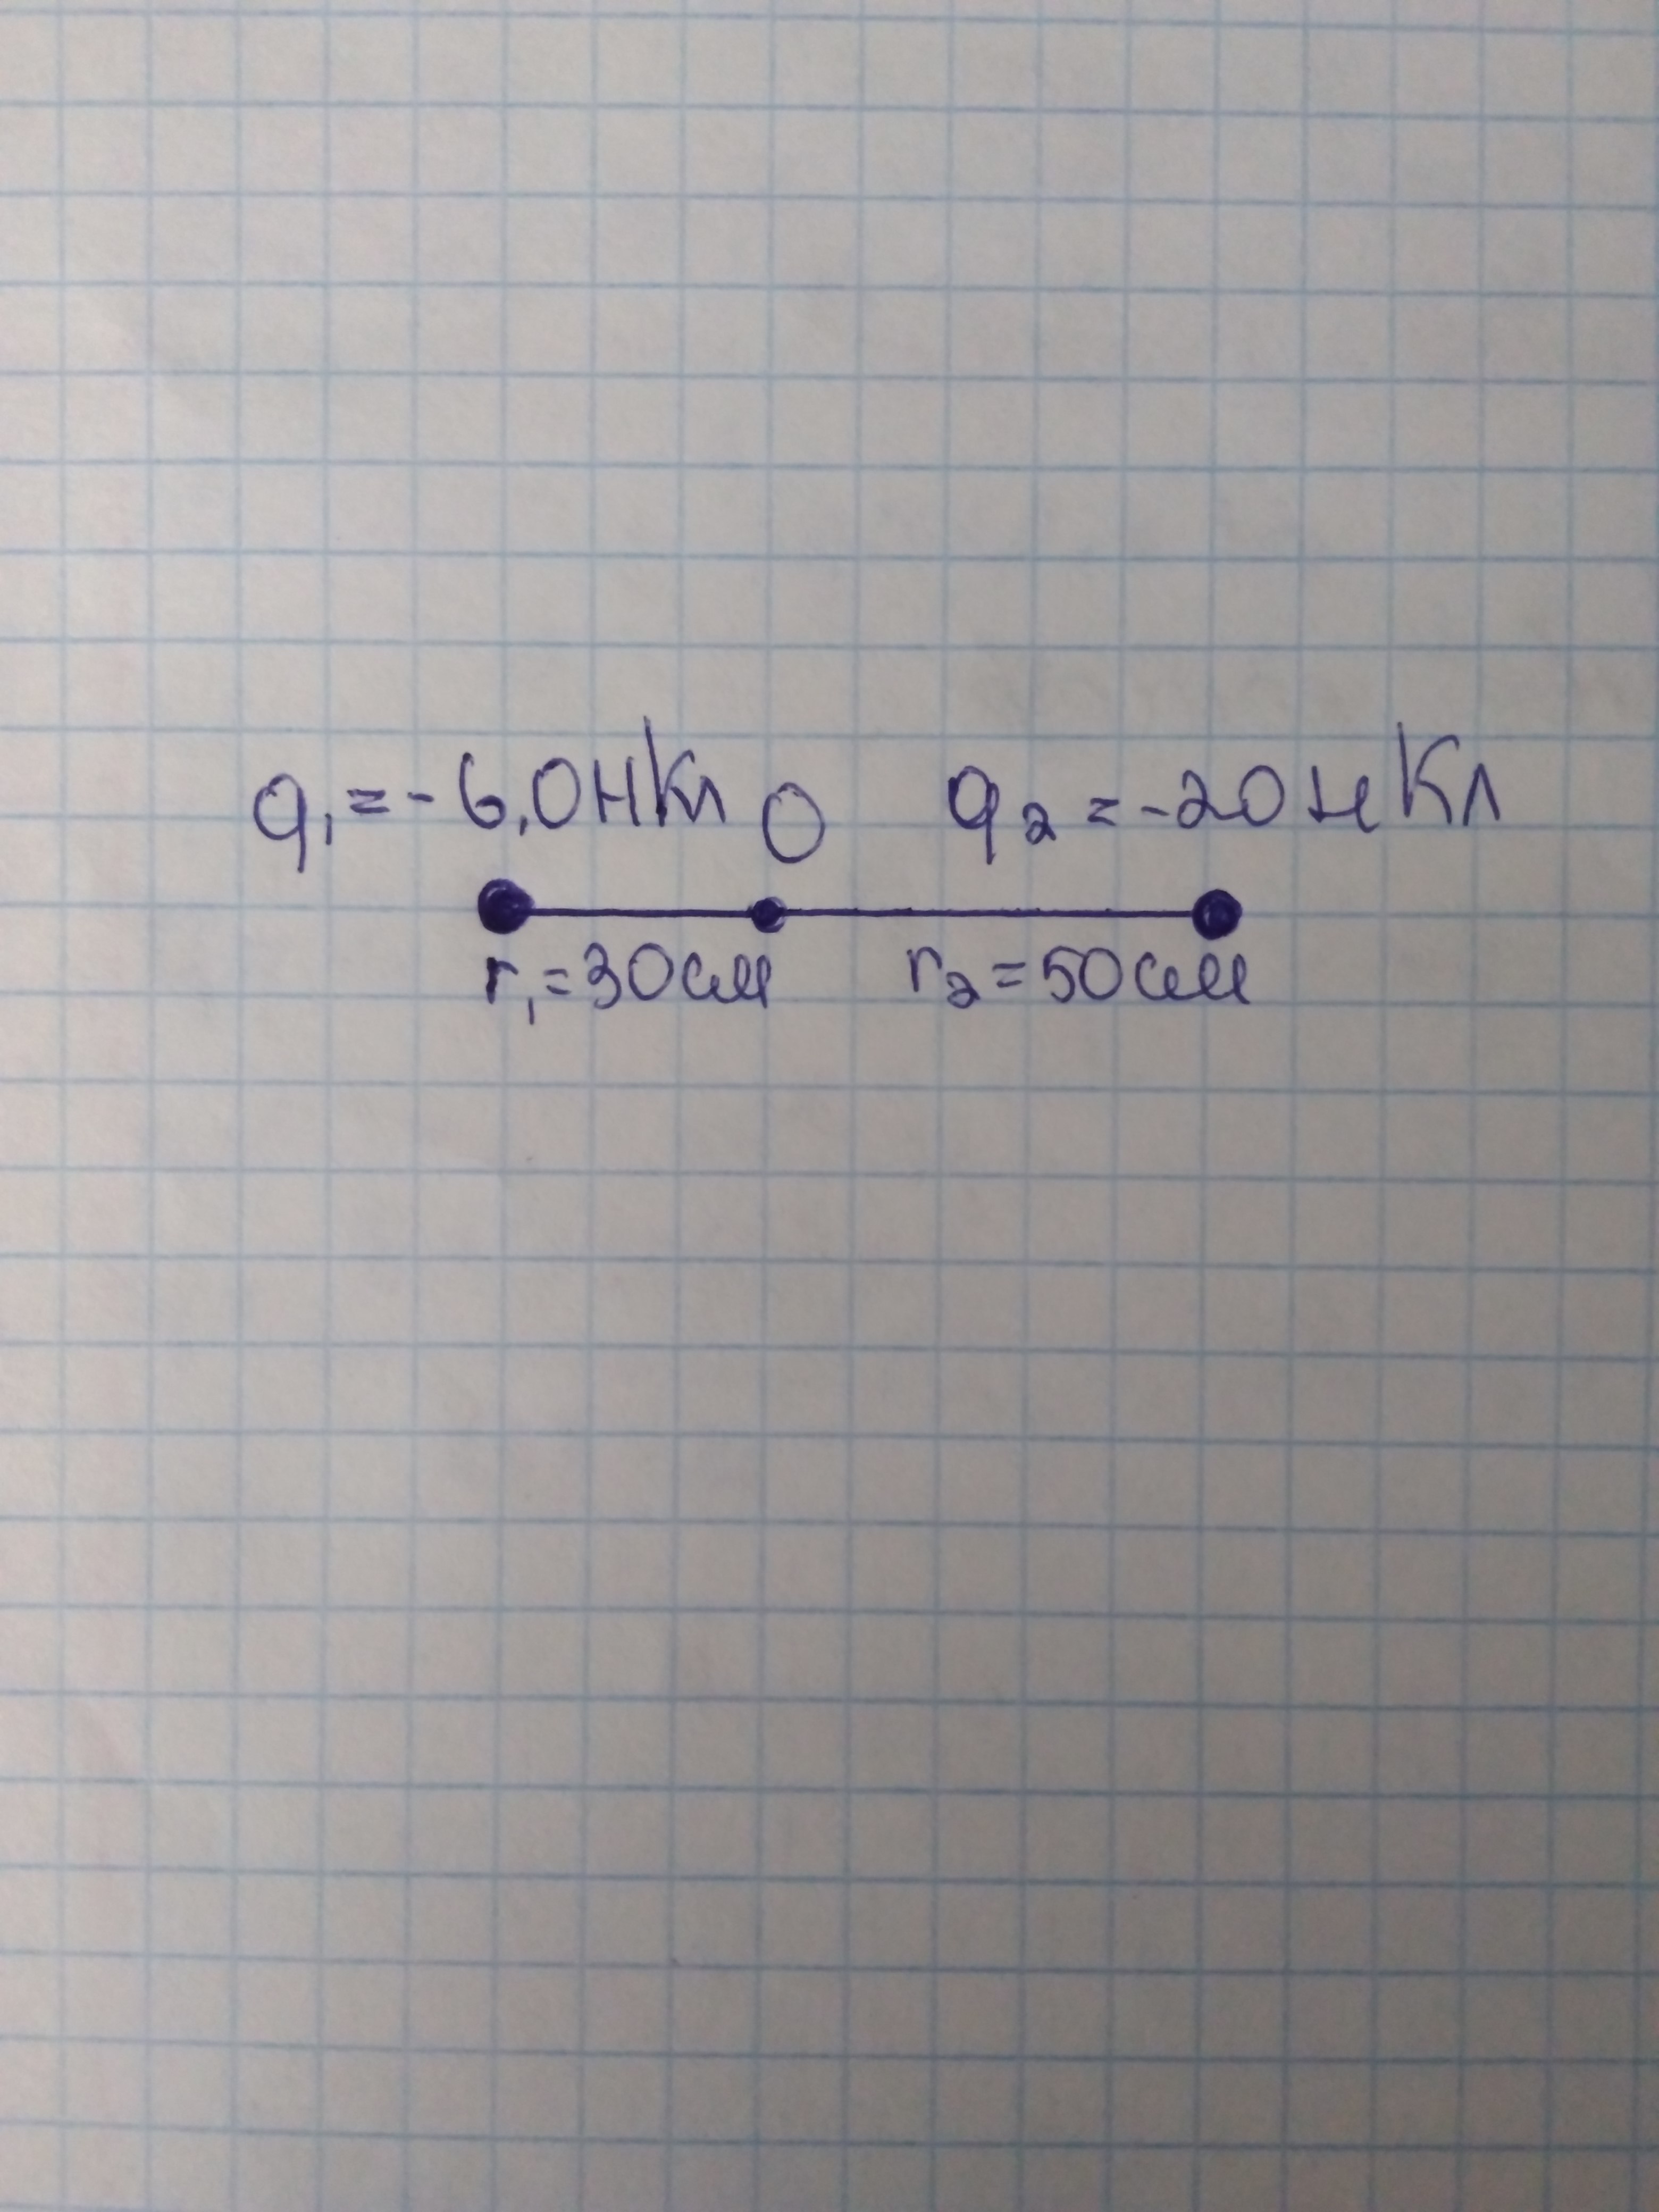 q₁ = - 6,0 нКл O q₂ = -20 нКл
r₁ = 30 см r₂ = 50 см